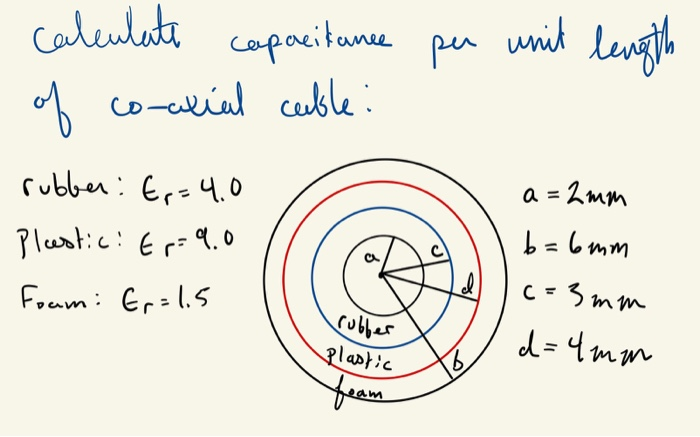 Calculate capacitance per unit length
of co-axial cable:
rubber: Er = 4.0
Plastic: Er = 9.0
Foam: Er = 1.5
a
c
d
b
rubber
plastic
foam
a = 2mm
b = 6mm
c = 3mm
d = 4mm